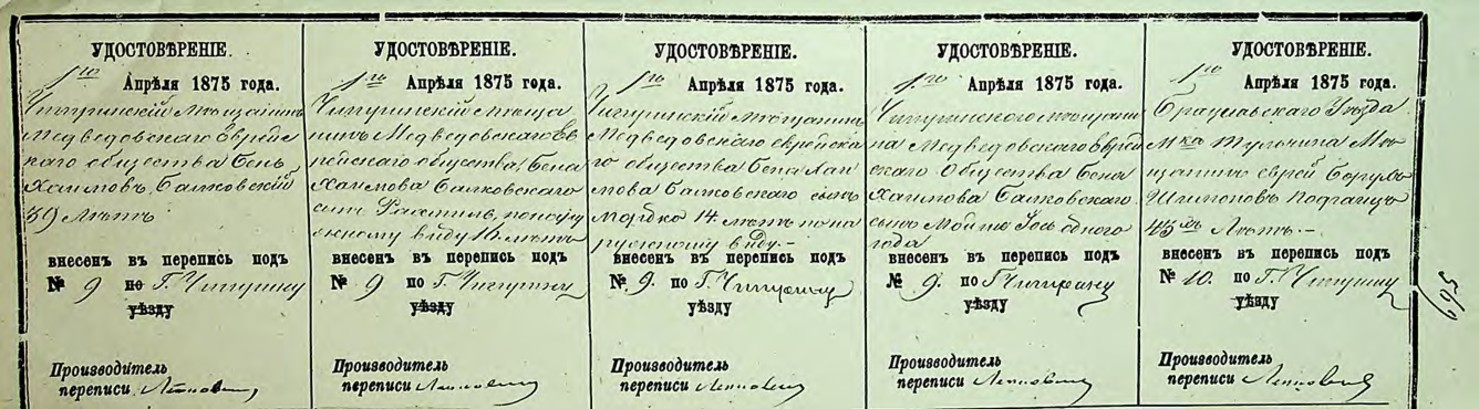 УДОСТОВѢРЕНІЕ.
1го Апрѣля 1875 года.
Чигиринскій мѣщанинъ
Медведовскаго Еврейс
каго общества Бень
Хаимовъ Балковскій
39 лѣтъ
внесенъ въ перепись подъ
№ 9 по Г. Чигирину
уѣзду
Производитель
переписи
УДОСТОВѢРЕНІЕ.
1го Апрѣля 1875 года.
Чигиринскій мѣща
нинъ Медведовскаго Ев
рейскаго общества, Бена
Хаимова Балковскаго
сынъ по наруж
ному виду 16 лѣтъ
внесенъ въ перепись подъ
№ 9 по Г. Чигирину
уѣзду
Производитель
переписи
УДОСТОВѢРЕНІЕ.
1го Апрѣля 1875 года.
Чигиринскій мѣщанинъ
Медведовскаго еврейска
го общества Бена Хаи
мова Балковскаго сынъ
Мордко 14 лѣтъ по на
ружному виду.-
внесенъ въ перепись подъ
№ 9. по Г. Чигирину
уѣзду
Производитель
переписи
УДОСТОВѢРЕНІЕ.
1го Апрѣля 1875 года.
Чигиринскаго мѣщани
на Медведовскаго Еврей
скаго Общества Бена
Хаимова Балковскаго
сынъ Мойше Іось одного
года
внесенъ въ перепись подъ
№ 9. по Г. Чигирину
уѣзду
Производитель
переписи
УДОСТОВѢРЕНІЕ.
1го Апрѣля 1875 года.
Брацлавскаго Уѣзда
Мка Тульчина Мѣ
щанинъ еврей Борухъ
Шлиомовъ
45 лѣтъ.-
внесенъ въ перепись подъ
№ 10. по Г. Чигирину
уѣзду
Производитель
переписи
695